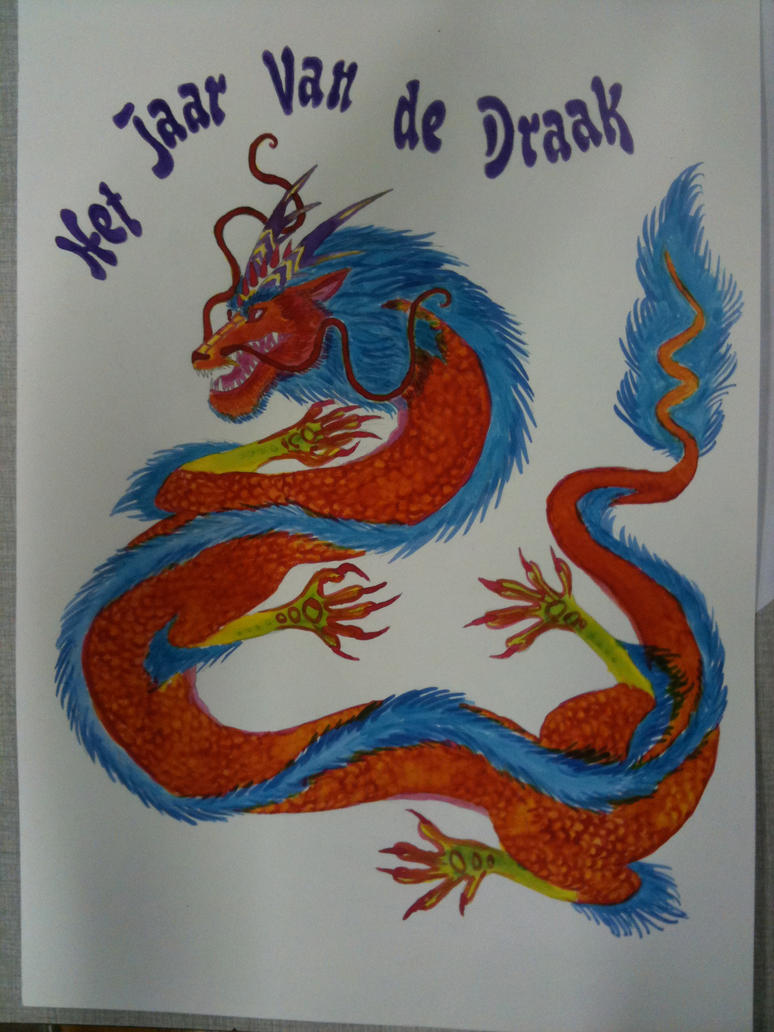 Het Jaar Van de Draak